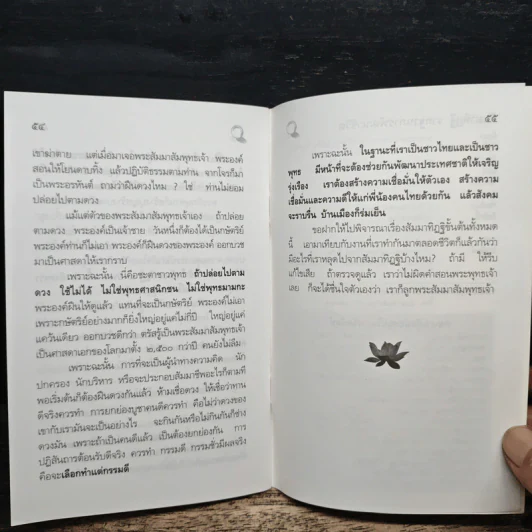 ๕๔
เขาฆ่าตาย แต่เมื่อมาเจอพระสัมมาสัมพุทธเจ้า พระองค์
สอนให้โยนดาบทิ้ง แล้วปฏิบัติธรรมตามท่าน จากโจรก็มา
เป็นพระอรหันต์ ถามว่าฝืนดวงไหม ? ใช่ ท่านไม่ยอม
ปล่อยไปตามดวง
แม้แต่ตัวของพระสัมมาสัมพุทธเจ้าเอง ถ้าปล่อย
ตามดวง พระองค์เป็นเจ้าชาย วันหนึ่งก็ต้องได้เป็นกษัตริย์
พระองค์ท่านก็ไม่เอา พระองค์ก็ฝืนดวงของพระองค์ ออกบวช
มาเป็นศาสดาให้เรากราบ
เพราะฉะนั้น นี่คือชะตาชาวพุทธ ถ้าปล่อยไปตาม
ดวง ใช้ไม่ได้ ไม่ใช่พุทธศาสนิกชน ไม่ใช่พุทธมามกะ
พระองค์ฝืนให้ดูแล้ว แทนที่จะเป็นกษัตริย์ พระองค์ไม่เอา
เพราะกษัตริย์อย่างมากก็ยิ่งใหญ่อยู่แค่ไม่กี่ปี ใหญ่อยู่
แค่วันเดียว ออกบวชดีกว่า ตรัสรู้เป็นพระสัมมาสัมพุทธเจ้า
เป็นศาสดาเอกของโลกมาตั้ง ๒,๕๐๐ กว่าปี คนยังไม่ลืม
เพราะฉะนั้น การที่จะเป็นผู้นำทางความคิด นัก
ปกครอง นักบริหาร หรือจะประกอบสัมมาชีพอะไรก็ตามที
พอเริ่มต้นก็ต้องฝืนดวงกันแล้ว ห้ามเชื่อดวง ให้เชื่อว่าทาน
ดีจริงควรทำ การยกย่องบูชาคนดีควรทำ คือไม่ว่าดวงของ
เขากับเรามันจะเป็นอย่างไร จะกินกันหรือไม่กินกันก็ช่าง
ดวงมัน เพราะถ้าเป็นคนดีแล้ว เป็นต้องยกย่องกัน การ
ปฏิสันถารต้อนรับดีจริง ควรทำ กรรมดี กรรมชั่วมีผลจริง
คือจะเลือกทำแต่กรรมดี
๕๕
เพราะฉะนั้น ในฐานะที่เราเป็นชาวไทยและเป็นชาว
พุทธ มีหน้าที่จะต้องช่วยกันพัฒนาประเทศชาติให้เจริญ
รุ่งเรือง เราต้องสร้างความเชื่อมั่นให้ตัวเอง สร้างความ
เชื่อมั่นและความดีให้แก่พี่น้องคนไทยด้วยกัน แล้วสังคม
จะราบรื่น บ้านเมืองก็ร่มเย็น
ขอฝากให้ไปพิจารณาเรื่องสัมมาทิฏฐิขั้นต้นทั้งหมด
นี้ เอามาเทียบกับงานที่เราทำกันมาตลอดชีวิตก็แล้วกันว่า
มีอะไรที่เราหลุดไปจากสัมมาทิฏฐิบ้างไหม? ถ้ามี ให้รีบ
แก้ไขเสีย ถ้าตรวจดูแล้ว เราว่าไม่ผิดคำสอนพระพุทธเจ้า
เลย ก็จะได้ชื่นใจตัวเองว่า เราก็ลูกพระสัมมาสัมพุทธเจ้า